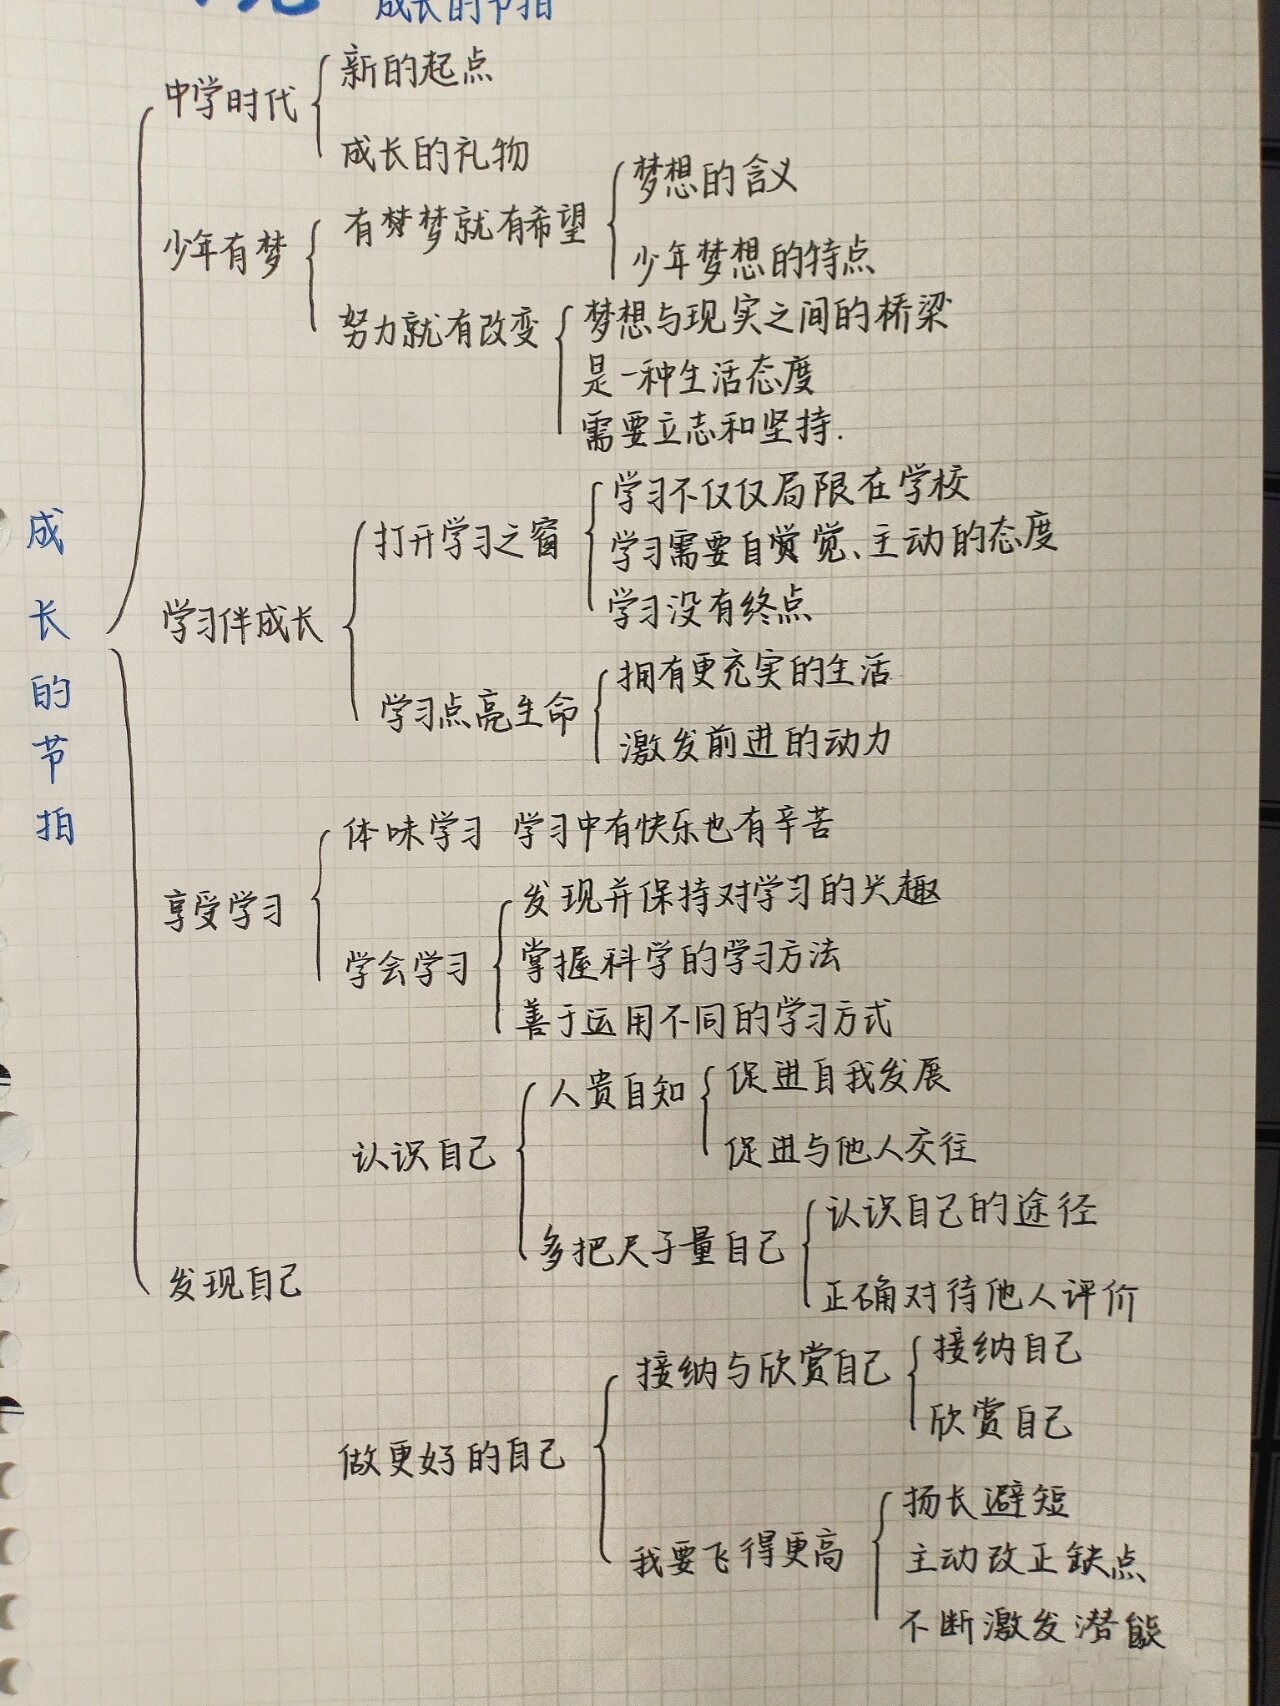 成长的节拍
中学时代
新的起点
成长的礼物
少年有梦
有梦就有希望
梦想的含义
少年梦想的特点
努力就有改变
梦想与现实之间的桥梁
是一种生活态度
需要立志和坚持.
成长的节拍
学习伴成长
打开学习之窗
学习不仅仅局限在学校
学习需要自觉、主动的态度
学习没有终点
学习点亮生命
拥有更充实的生活
激发前进的动力
享受学习
体味学习 学习中有快乐也有辛苦
学会学习
发现并保持对学习的兴趣
掌握科学的学习方法
善于运用不同的学习方式
发现自己
认识自己
人贵自知
促进自我发展
促进与他人交往
多把尺子量自己
认识自己的途径
正确对待他人评价
做更好的自己
接纳与欣赏自己
接纳自己
欣赏自己
我要飞得更高
扬长避短
主动改正缺点
不断激发潜能